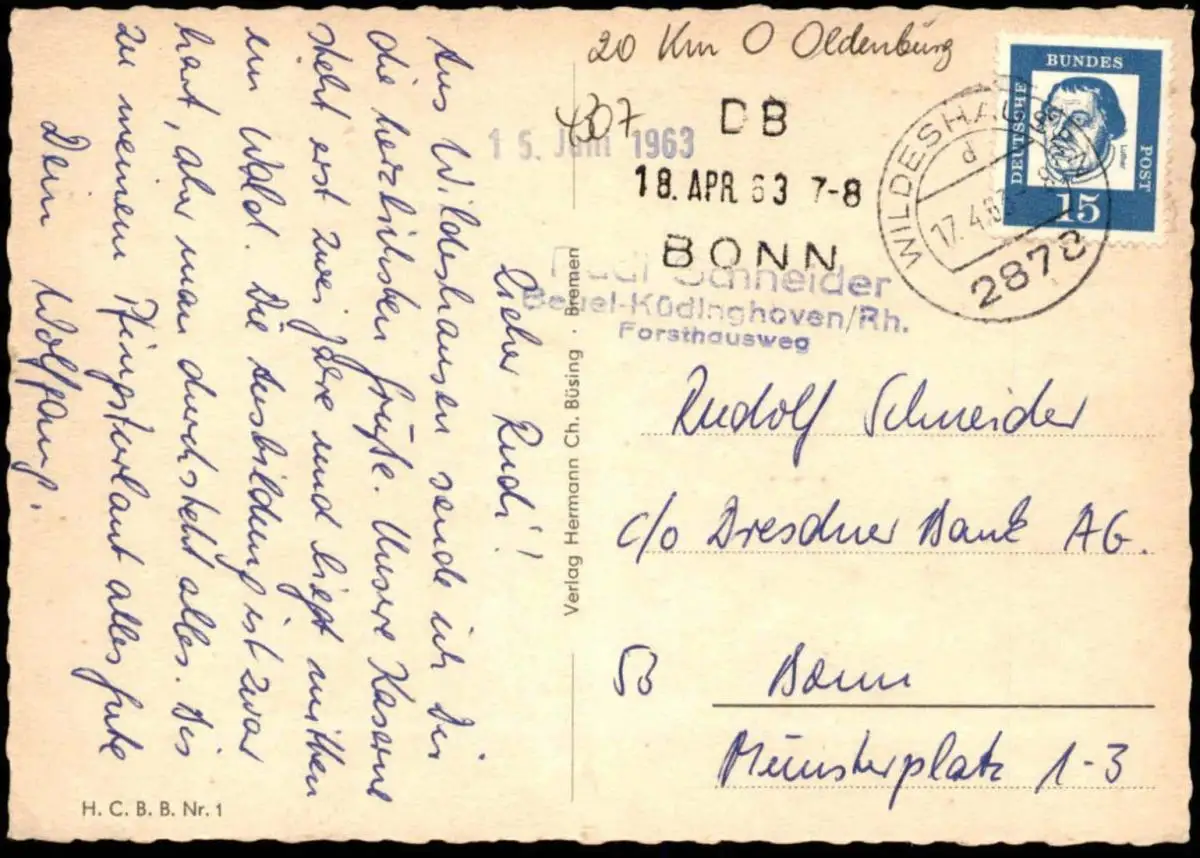 Lieber Rudi!
Aus Wildeshausen sende ich Dir
die herzlichsten Grüße. Unsere Kaserne
steht erst zwei Jare und liegt mitten
im Wald. Die Ausbildung ist zwar
hart, abr man durchsteht alles. Bis
zu meinem Pfingsturlaut alles Gute
Dein Wolfgang.
H. C. B. B. Nr. 1
Verlag Hermann Ch. Büsing · Bremen
20 Km O Oldenburg
307
15. Juni 1963
DB
18. APR. 63 7-8
BONN
WILDESHAUSEN
d
17.4.63
2878
DEUTSCHE
BUNDES
POST
Luther
15
Rudi Schneider
Beuel-Küdinghoven/Rh.
Forsthausweg
Rudolf Schneider
c/o Dresdner Bank AG.
53 Bonn
Münsterplatz 1-3